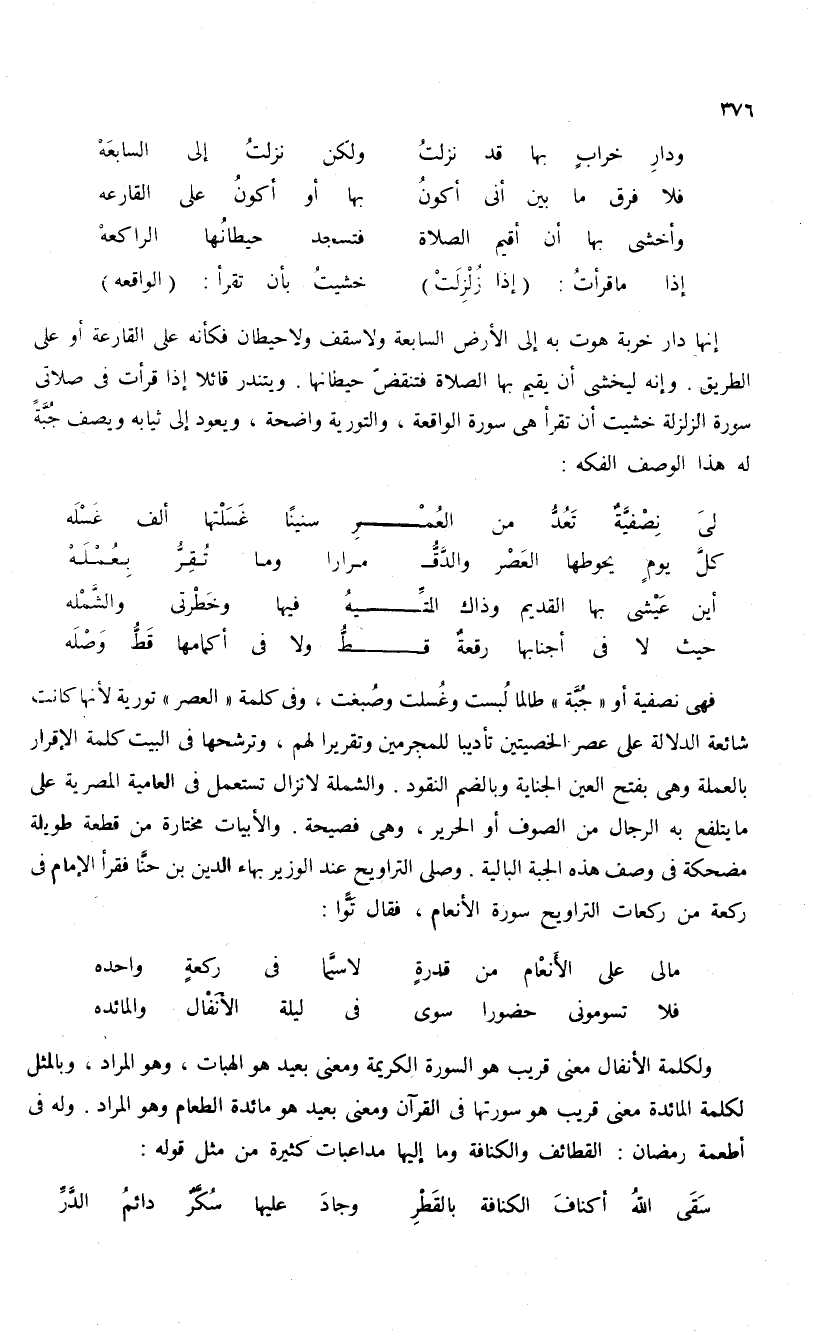 ٣٧٦
ودارِ خرابٍ بها قد نزلتُ ولكن نزلتُ إلى السابعَهْ
فلا فرق ما بين أنى أكونُ بها أو أكونُ على القارعه
وأخشى بها أن أقيم الصلاة فتسجد حيطانُها الراكعهْ
إذا ماقرأتُ : (إذا زُلْزِلَتْ) خشيتُ بأن تقرأ : (الواقعه)
إنها دار خربة هوت به إلى الأرض السابعة ولاسقف ولاحيطان فكأنه على القارعة أو على
الطريق . وإنه ليخشى أن يقيم بها الصلاة فتنقضّ حيطانها . ويتندر قائلا إذا قرأت فى صلاتى
سورة الزلزلة خشيت أن تقرأ هى سورة الواقعة ، والتورية واضحة ، ويعود إلى ثيابه ويصف جُبَّةً
له هذا الوصف الفكه :
لىَ نِصْفيَّةٌ تَعُدُّ من العُمْــرِ سنينًا غَسَلْتها ألف غَسْلَه
كلَّ يومٍ يحوطها العَصْر والدَّقُّ مرارا وما تُقِرُّ بِعُمْلَهْ
أين عَيْشى بها القديم وذاك التِّــيهُ فيها وخَطْرتى والشَّمْله
حيث لا فى أجنابها رقعةٌ قــطُّ ولا فى أكمامها قَطُّ وَصْلَه
فهى نصفية أو « جُبَّة » طالما لُبست وغُسلت وصُبغت ، وفى كلمة « العصر » تورية لأنها كانت
شائعة الدلالة على عصر الخصيتين تأديبا للمجرمين وتقريرا لهم ، وترشحها فى البيت كلمة الإقرار
بالعملة وهى بفتح العين الجناية وبالضم النقود . والشملة لاتزال تستعمل فى العامية المصرية على
مايتلفع به الرجال من الصوف أو الحرير ، وهى فصيحة . والأبيات مختارة من قطعة طويلة
مضحكة فى وصف هذه الجبة البالية . وصلى التراويح عند الوزير بهاء الدين بن حنَّا فقرأ الإمام فى
ركعة من ركعات التراويح سورة الأنعام ، فقال تَوًّا :
مالى على الأَنعْام من قدرةٍ لاسيَّما فى ركعةٍ واحده
فلا تسومونى حضورا سوى فى ليلة الأَنْفَال والمائده
ولكلمة الأنفال معنى قريب هو السورة الكريمة ومعنى بعيد هو الهبات ، وهو المراد ، وبالمثل
لكلمة المائدة معنى قريب هو سورتها فى القرآن ومعنى بعيد هو مائدة الطعام وهو المراد . وله فى
أطعمة رمضان : القطائف والكنافة وما إليها مداعبات كثيرة من مثل قوله :
سَقَى اللهُ أكنافَ الكنافة بالقَطْرِ وجادَ عليها سُكَّرٌ دائمُ الدَّرِّ